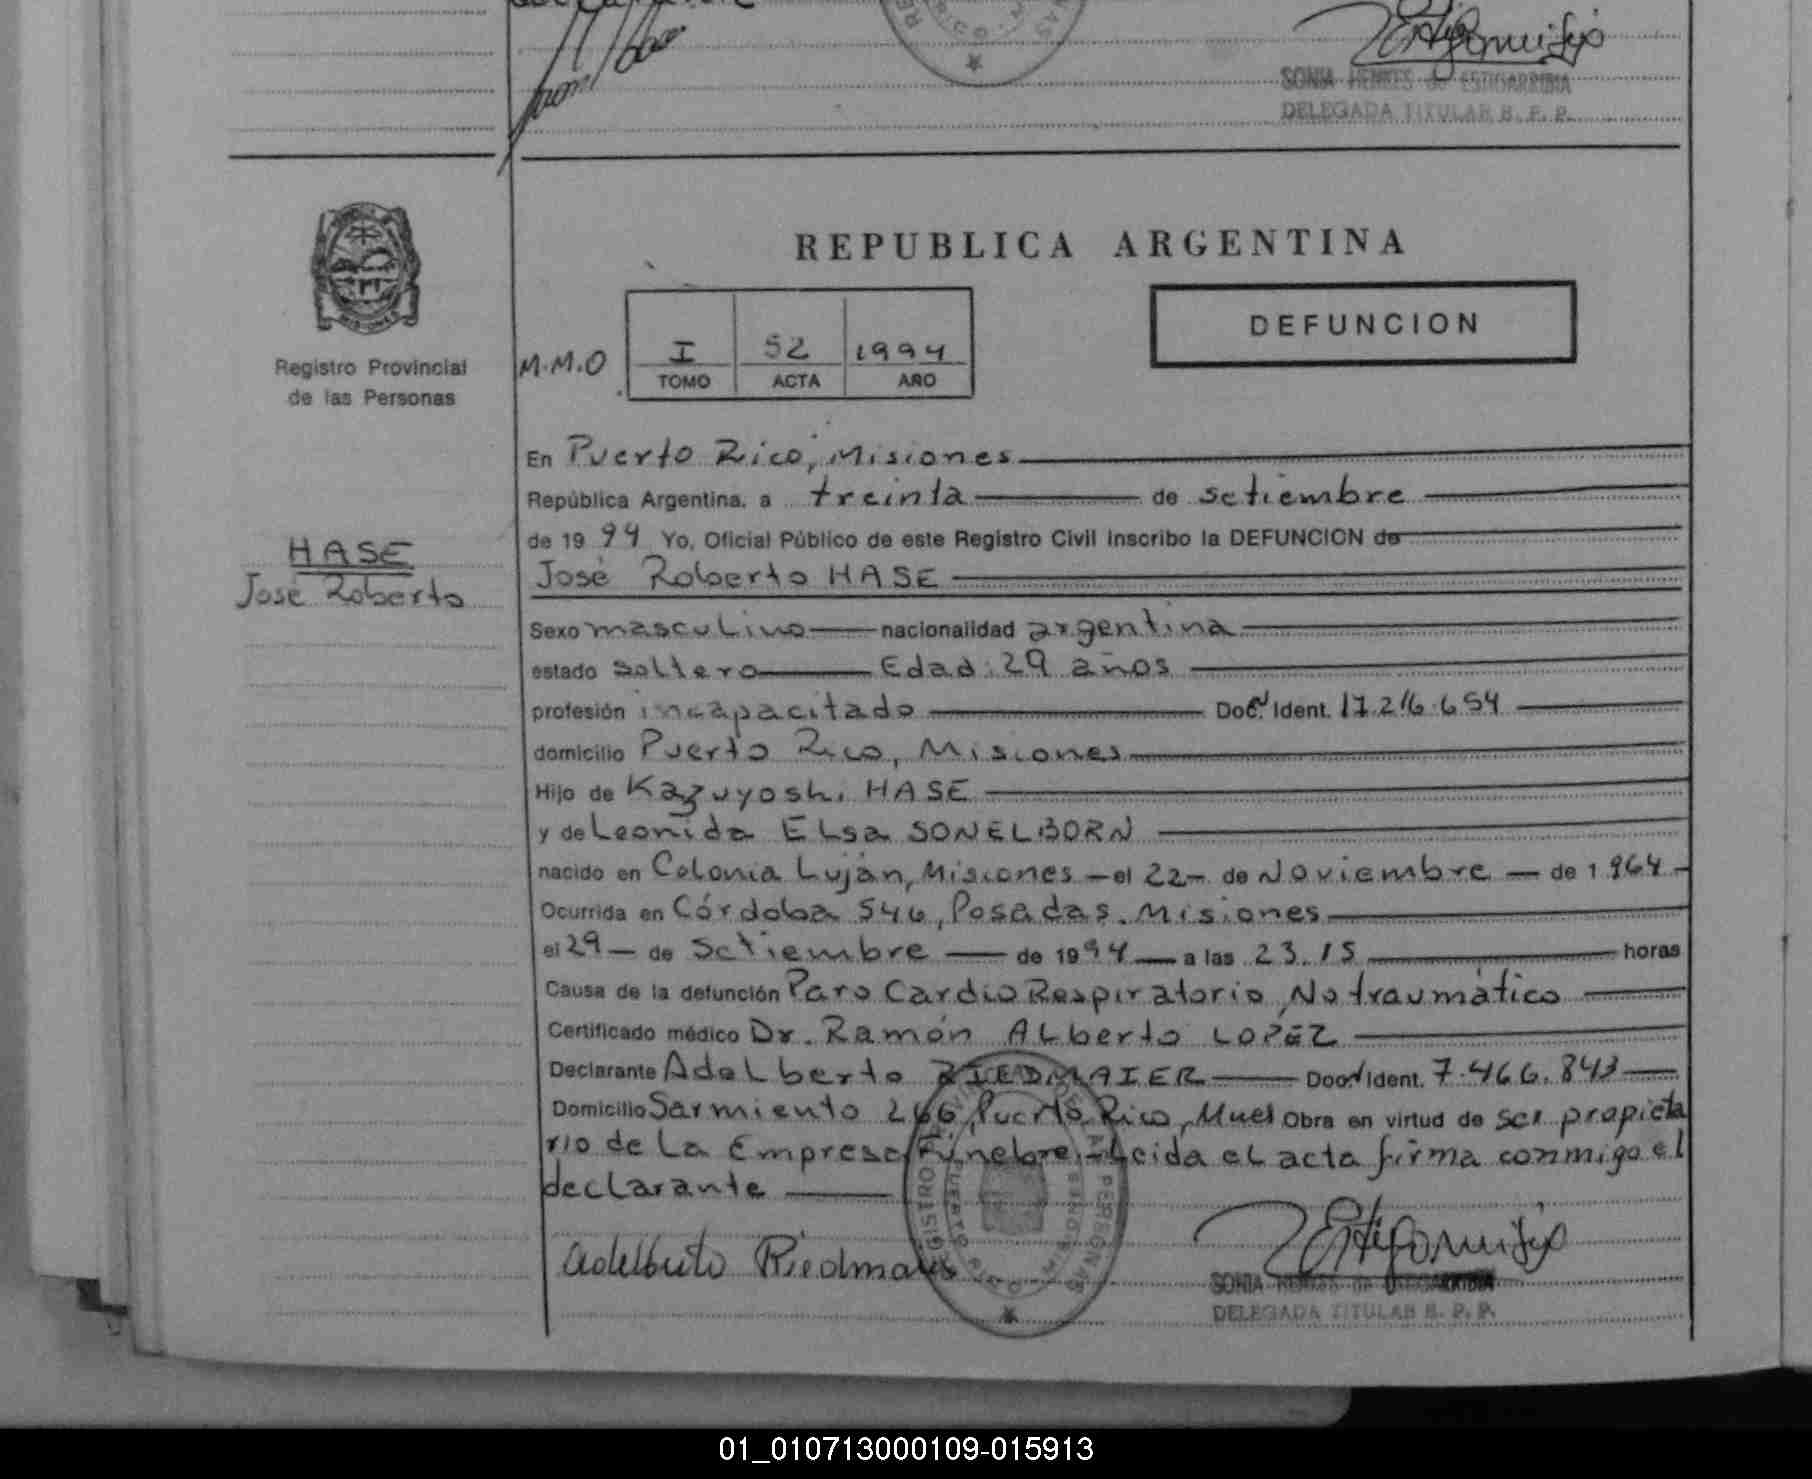 SONIA HENKES de ESTIGARRIBIA
DELEGADA TITULAR R. P. P.
REPUBLICA ARGENTINA
DEFUNCION
M.M.O
I 52 1994
TOMO ACTA AÑO
MISIONES
Registro Provincial
de las Personas
HASE
José Roberto
En Puerto Rico, Misiones
República Argentina, a treinta de setiembre
de 1994 Yo, Oficial Público de este Registro Civil inscribo la DEFUNCION de
José Roberto HASE
Sexo masculino nacionalidad argentina
estado soltero Edad: 29 años
profesión incapacitado Doc. Ident. 17.216.654
domicilio Puerto Rico, Misiones
Hijo de Kazuyoshi HASE
y de Leonida Elsa SONELBORN
nacido en Colonia Luján, Misiones - el 22 - de Noviembre - de 1964 -
Ocurrida en Córdoba 546, Posadas. Misiones
el 29 - de Setiembre - de 1994 - a las 23.15 horas
Causa de la defunción Paro Cardio Respiratorio, No traumático
Certificado médico Dr. Ramón Alberto LOPEZ
Declarante Adelberto RIEDMAIER Doc. Ident. 7.466.843
Domicilio Sarmiento 266, Puerto Rico, Mnes Obra en virtud de ser propieta
rio de la Empresa Fúnebre.- Leida el acta firma conmigo el
declarante
REGISTRO PROVINCIAL DE LAS PERSONAS
PUERTO RICO - MISIONES
Adelberto Riedmaier
SONIA HENKES de ESTIGARRIBIA
DELEGADA TITULAR R. P. P.
01_010713000109-015913